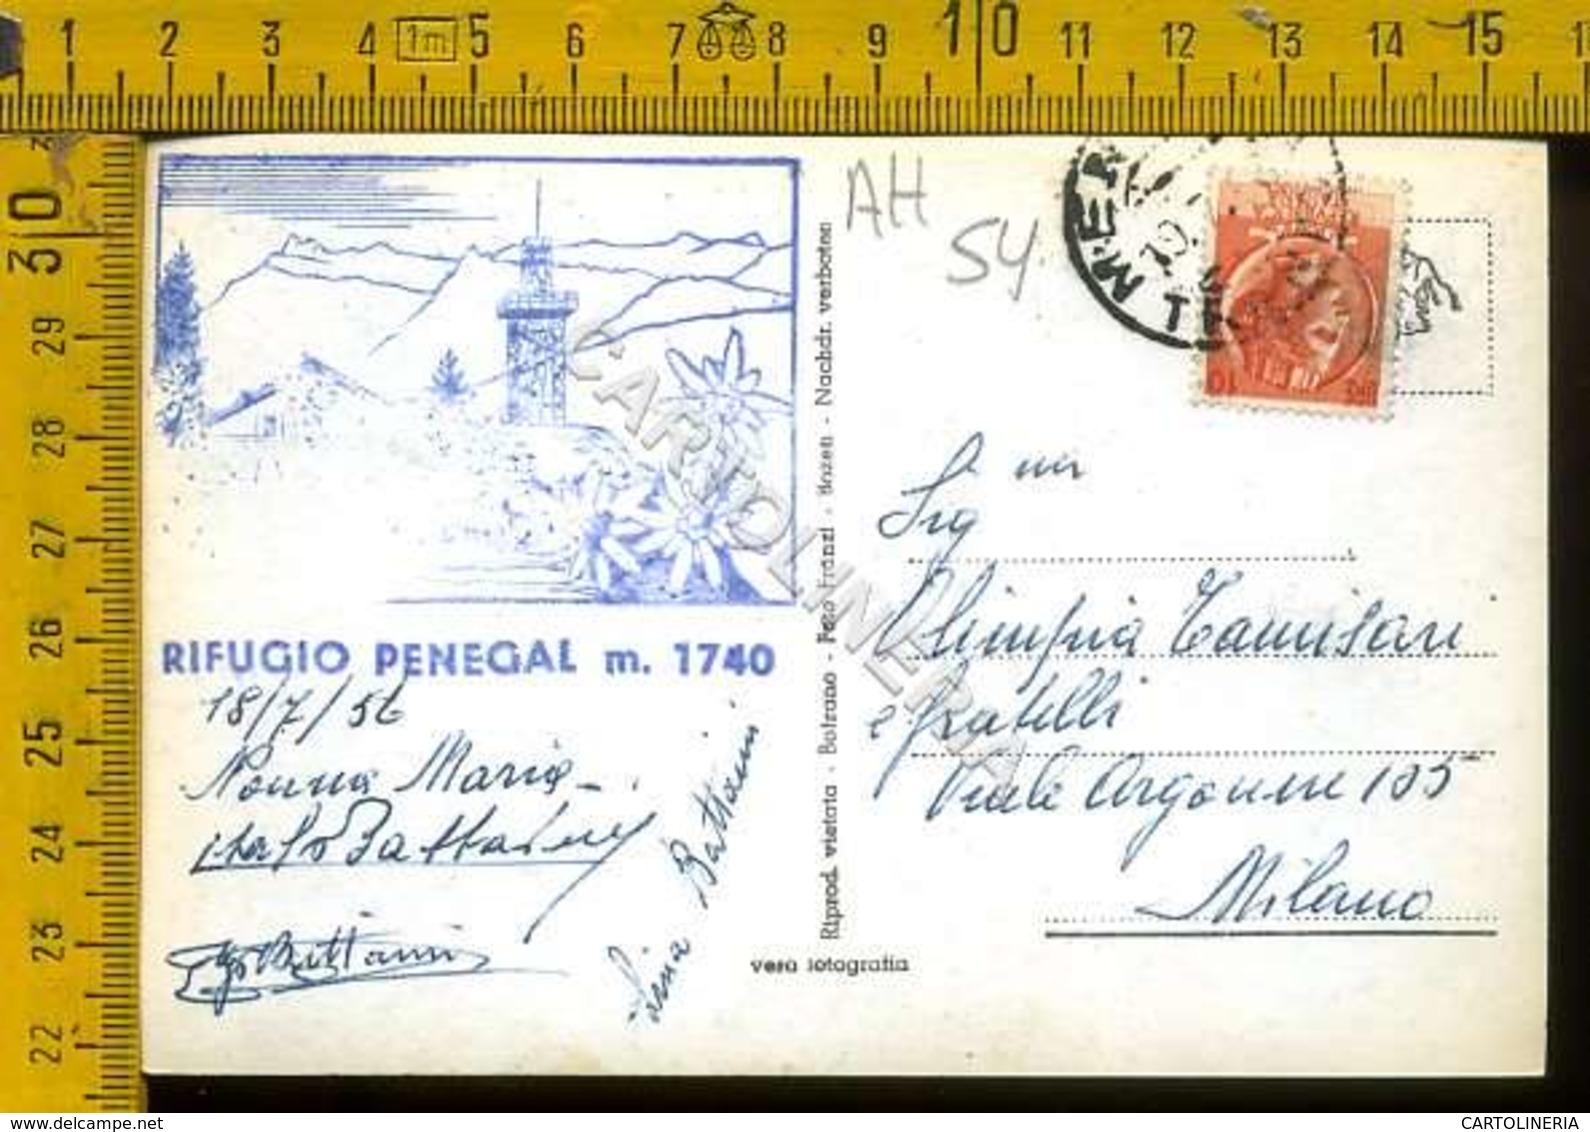 1 2 3 4 1m 5 6 7 8 9 10 11 12 13 14 15
30
29
28
27
26
25
24
23
22
AH
54
MER
TE
DI
LIRE
RIFUGIO PENEGAL m. 1740
18/7/56
Nonna Maria
Italo Battaini
Battaini
Lina Battaini
Riprod. vietata - Bolzano - Foto Franzl - Bozen - Nachdr. verboten
vera fotografia
Sig.na
Olimpia Tamisari
e fratelli
Viale Argonne 155
Milano
CARTOLINERIA
www.delcampe.net
CARTOLINERIA